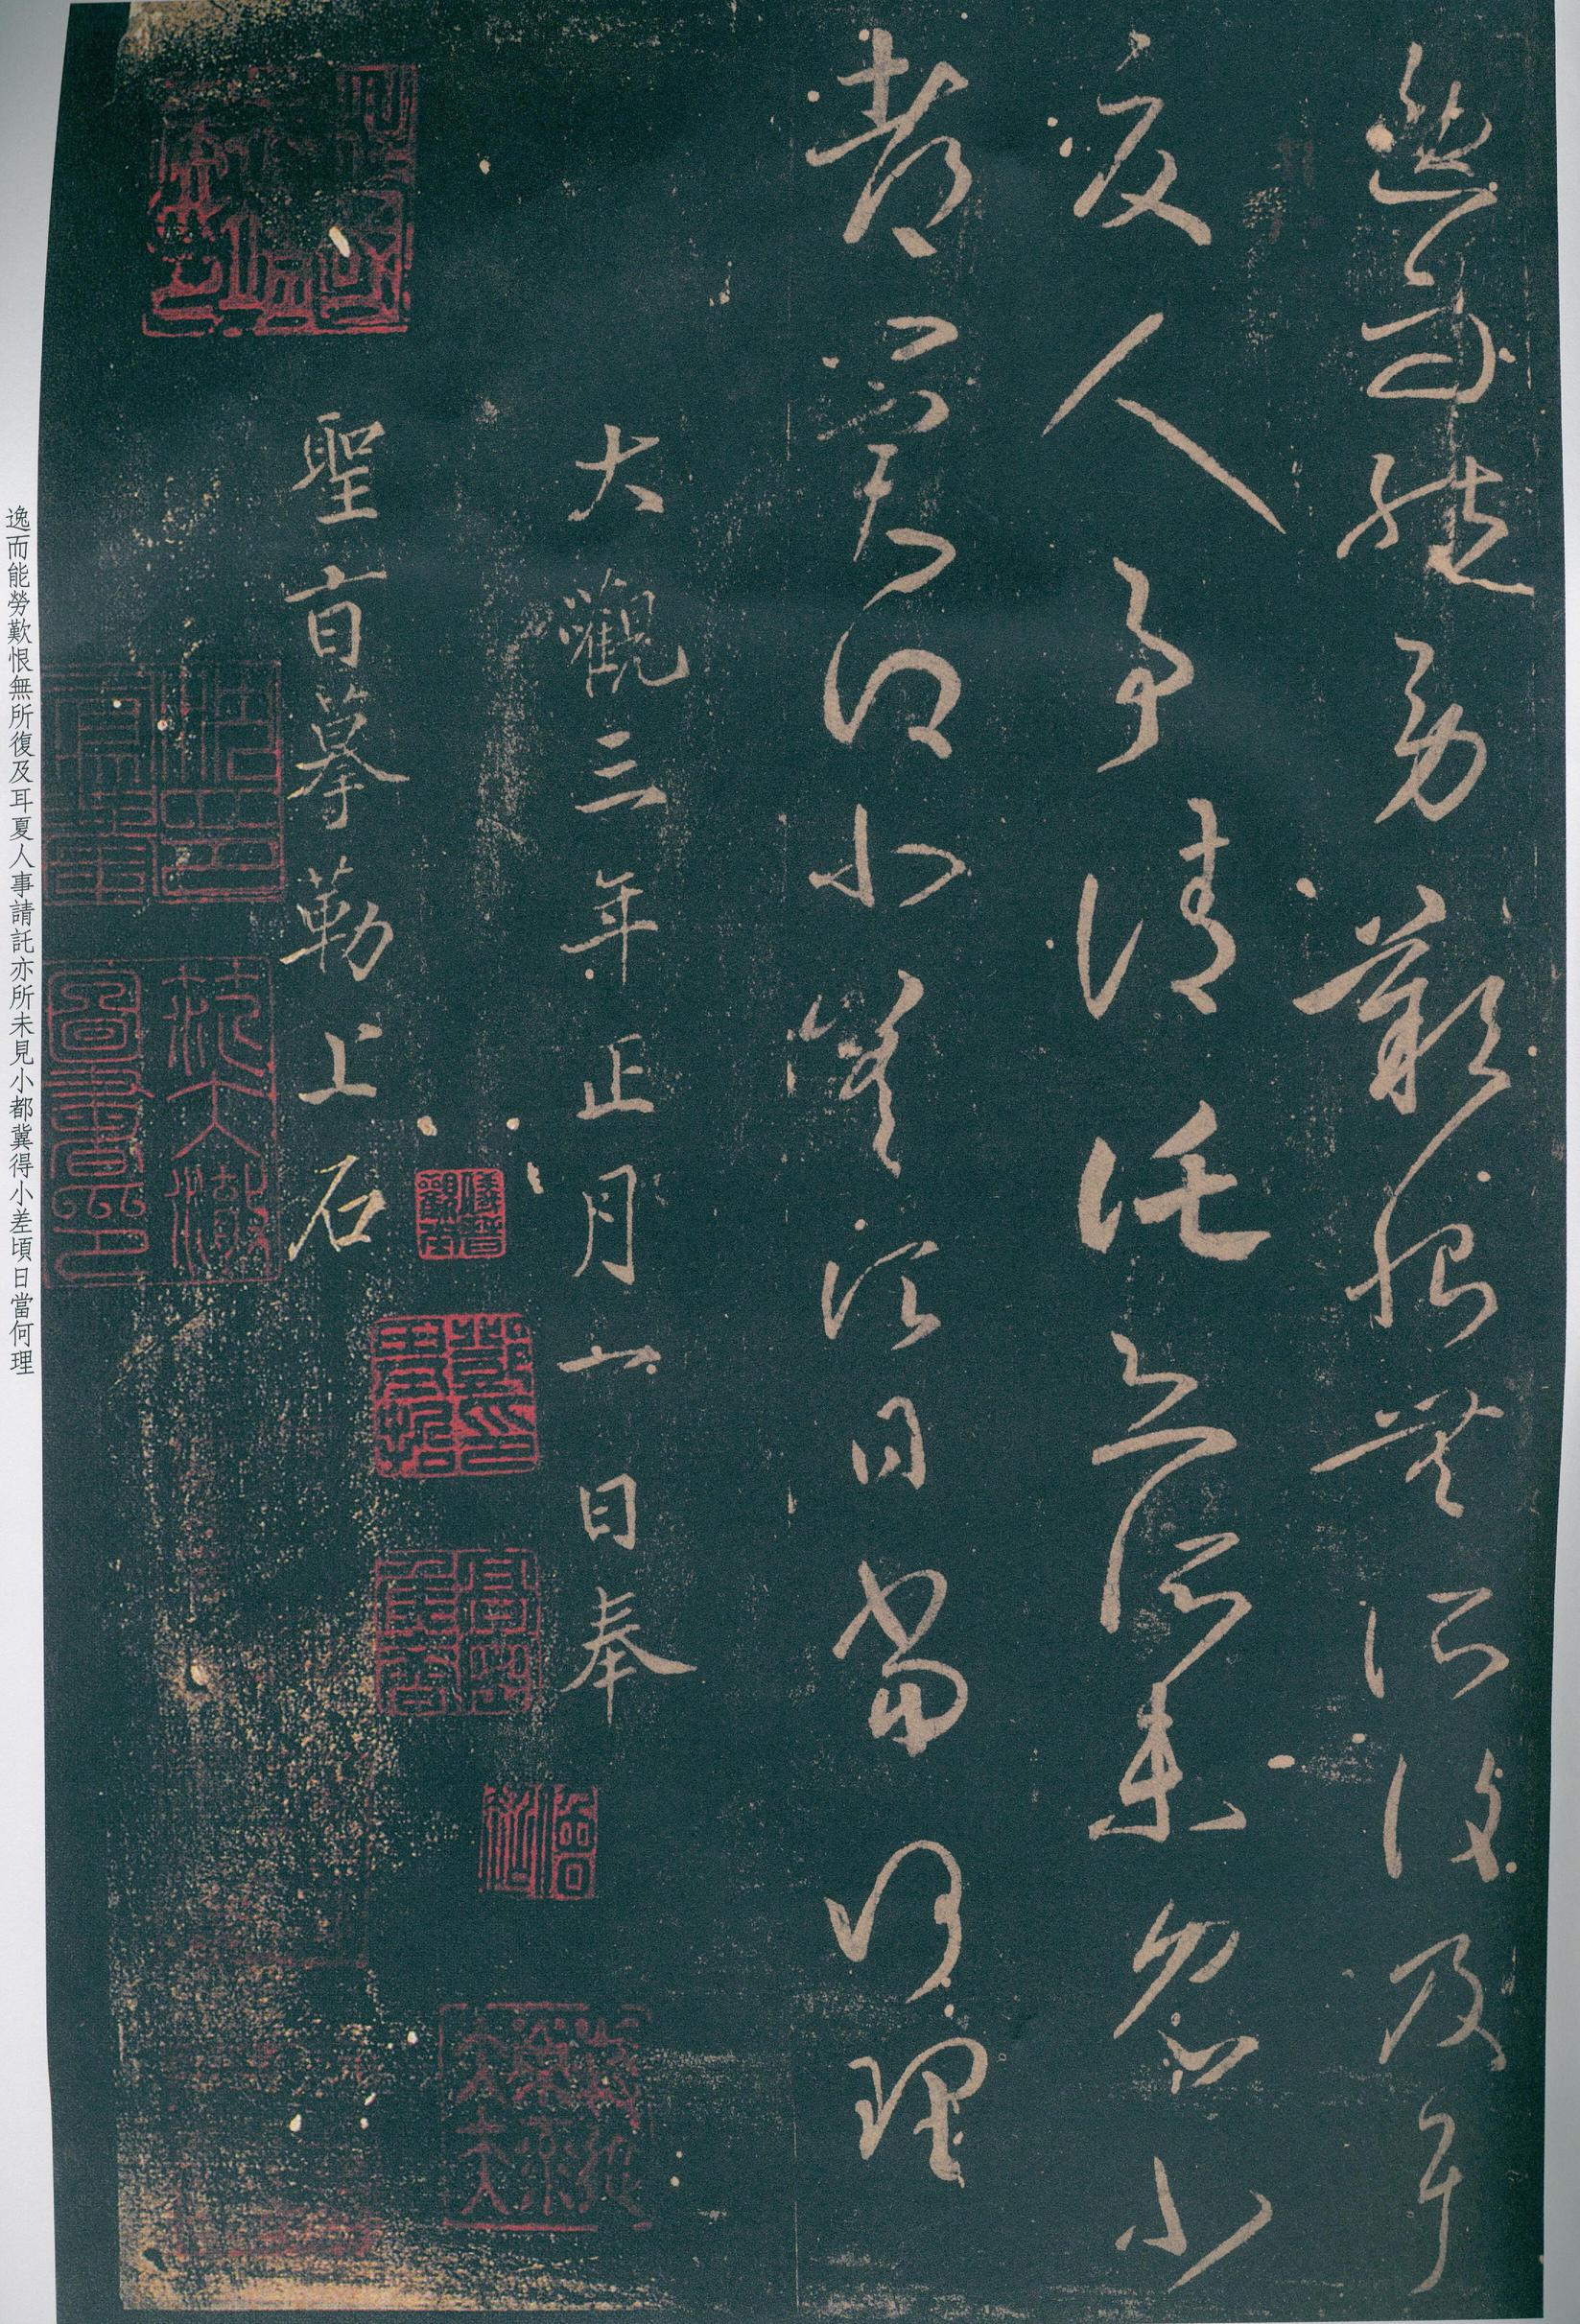 逸而能勞歎恨無所復及耳
夏人事請託亦所未見小
都冀得小差頃日當何理
大觀三年正月一日奉
聖旨摹勒上石
范大澈
圖書印
逸而能勞歎恨無所復及耳夏人事請託亦所未見小都冀得小差頃日當何理